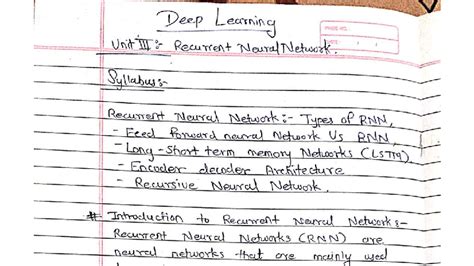 Deep Learning
Unit III :- Recurrent Neural Network.
Syllabus:-
Recurrent Neural Network:- Types of RNN,
- Feed Forward neural Network Vs RNN,
- Long-Short term memory Networks (LSTM)
- Encoder decoder Architecture
- Recursive Neural Network.
# Introduction to Recurrent Neural Network:-
Recurrent Neural Networks (RNN) are
neural networks that are mainly used